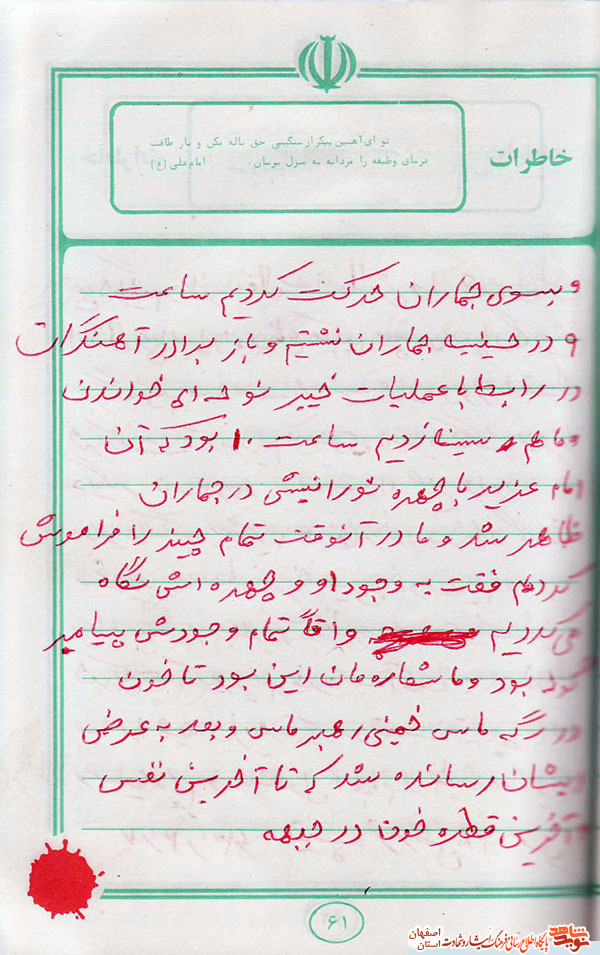 خاطرات
تو ای آهنین پیکر از سنگینی حق ناله مکن و بار طاقت
فرسای وظیفه را مردانه به منزل برسان. امام علی (ع)
و بسوی جماران حرکت کردیم ساعت
۹ در حسینیه جماران نشستیم و باز برادر آهنگران
در رابط با عملیات خیبر نوحه ای خواندن
و ما هم سینه زدیم ساعت ۱۰ بود که آن
امام عزیز با چهره نورانیشی در جماران
ظاهر شد و ما در آنوقت تمام چیز را فراموش
کرده‌ام فقت به وجود او و چهره اش نگاه
می کردیم واقاً تمام وجودش پیامبر
گونه بود و ما شعاره مان این بود تا خون
در رگ ماس خمینی رهبر ماس و بعد به عرض
ایشان رسانده شد که تا آخرین نفس
و آخرین قطره خون در جبهه
۶۱
نوید شاهد
پایگاه اطلاع رسانی فرهنگ ایثار و شهادت
اصفهان
استان